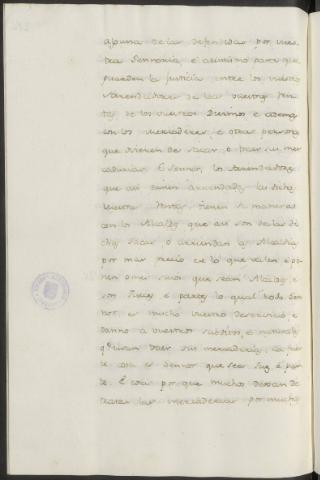 alguna de las defendidas por vues
tra Sennoria, e asimismo para que
guarden la justicia entre los vuestros
Arrendadores de las vuestras Ren
tas de los vuestros Diezmos e
con los mercaderes, e otras personas
que vienen de sacar, e traer sus mer
cadurias. E Sennor, los Arrendadores
que asi tienen arrendadas las dichas
vuestras Rentas tienen maneras
con los Alcaldes que asi son de las di
chas sacas, e arriendan las Alcaldias
por mas precio de lo que valen e po
nen de sus que sean Alcaldes, e
son Jueces e partes lo qual todo Sen
nor, es mucho vuestro deservicio, e
danno a vuestros subditos, e naturales
que traer sus mercaderias, ca fuer
te cosa es Sennor que sea Juez e par
te. E cosa por que mucho dexan de
tratar las mercaderias por mucho